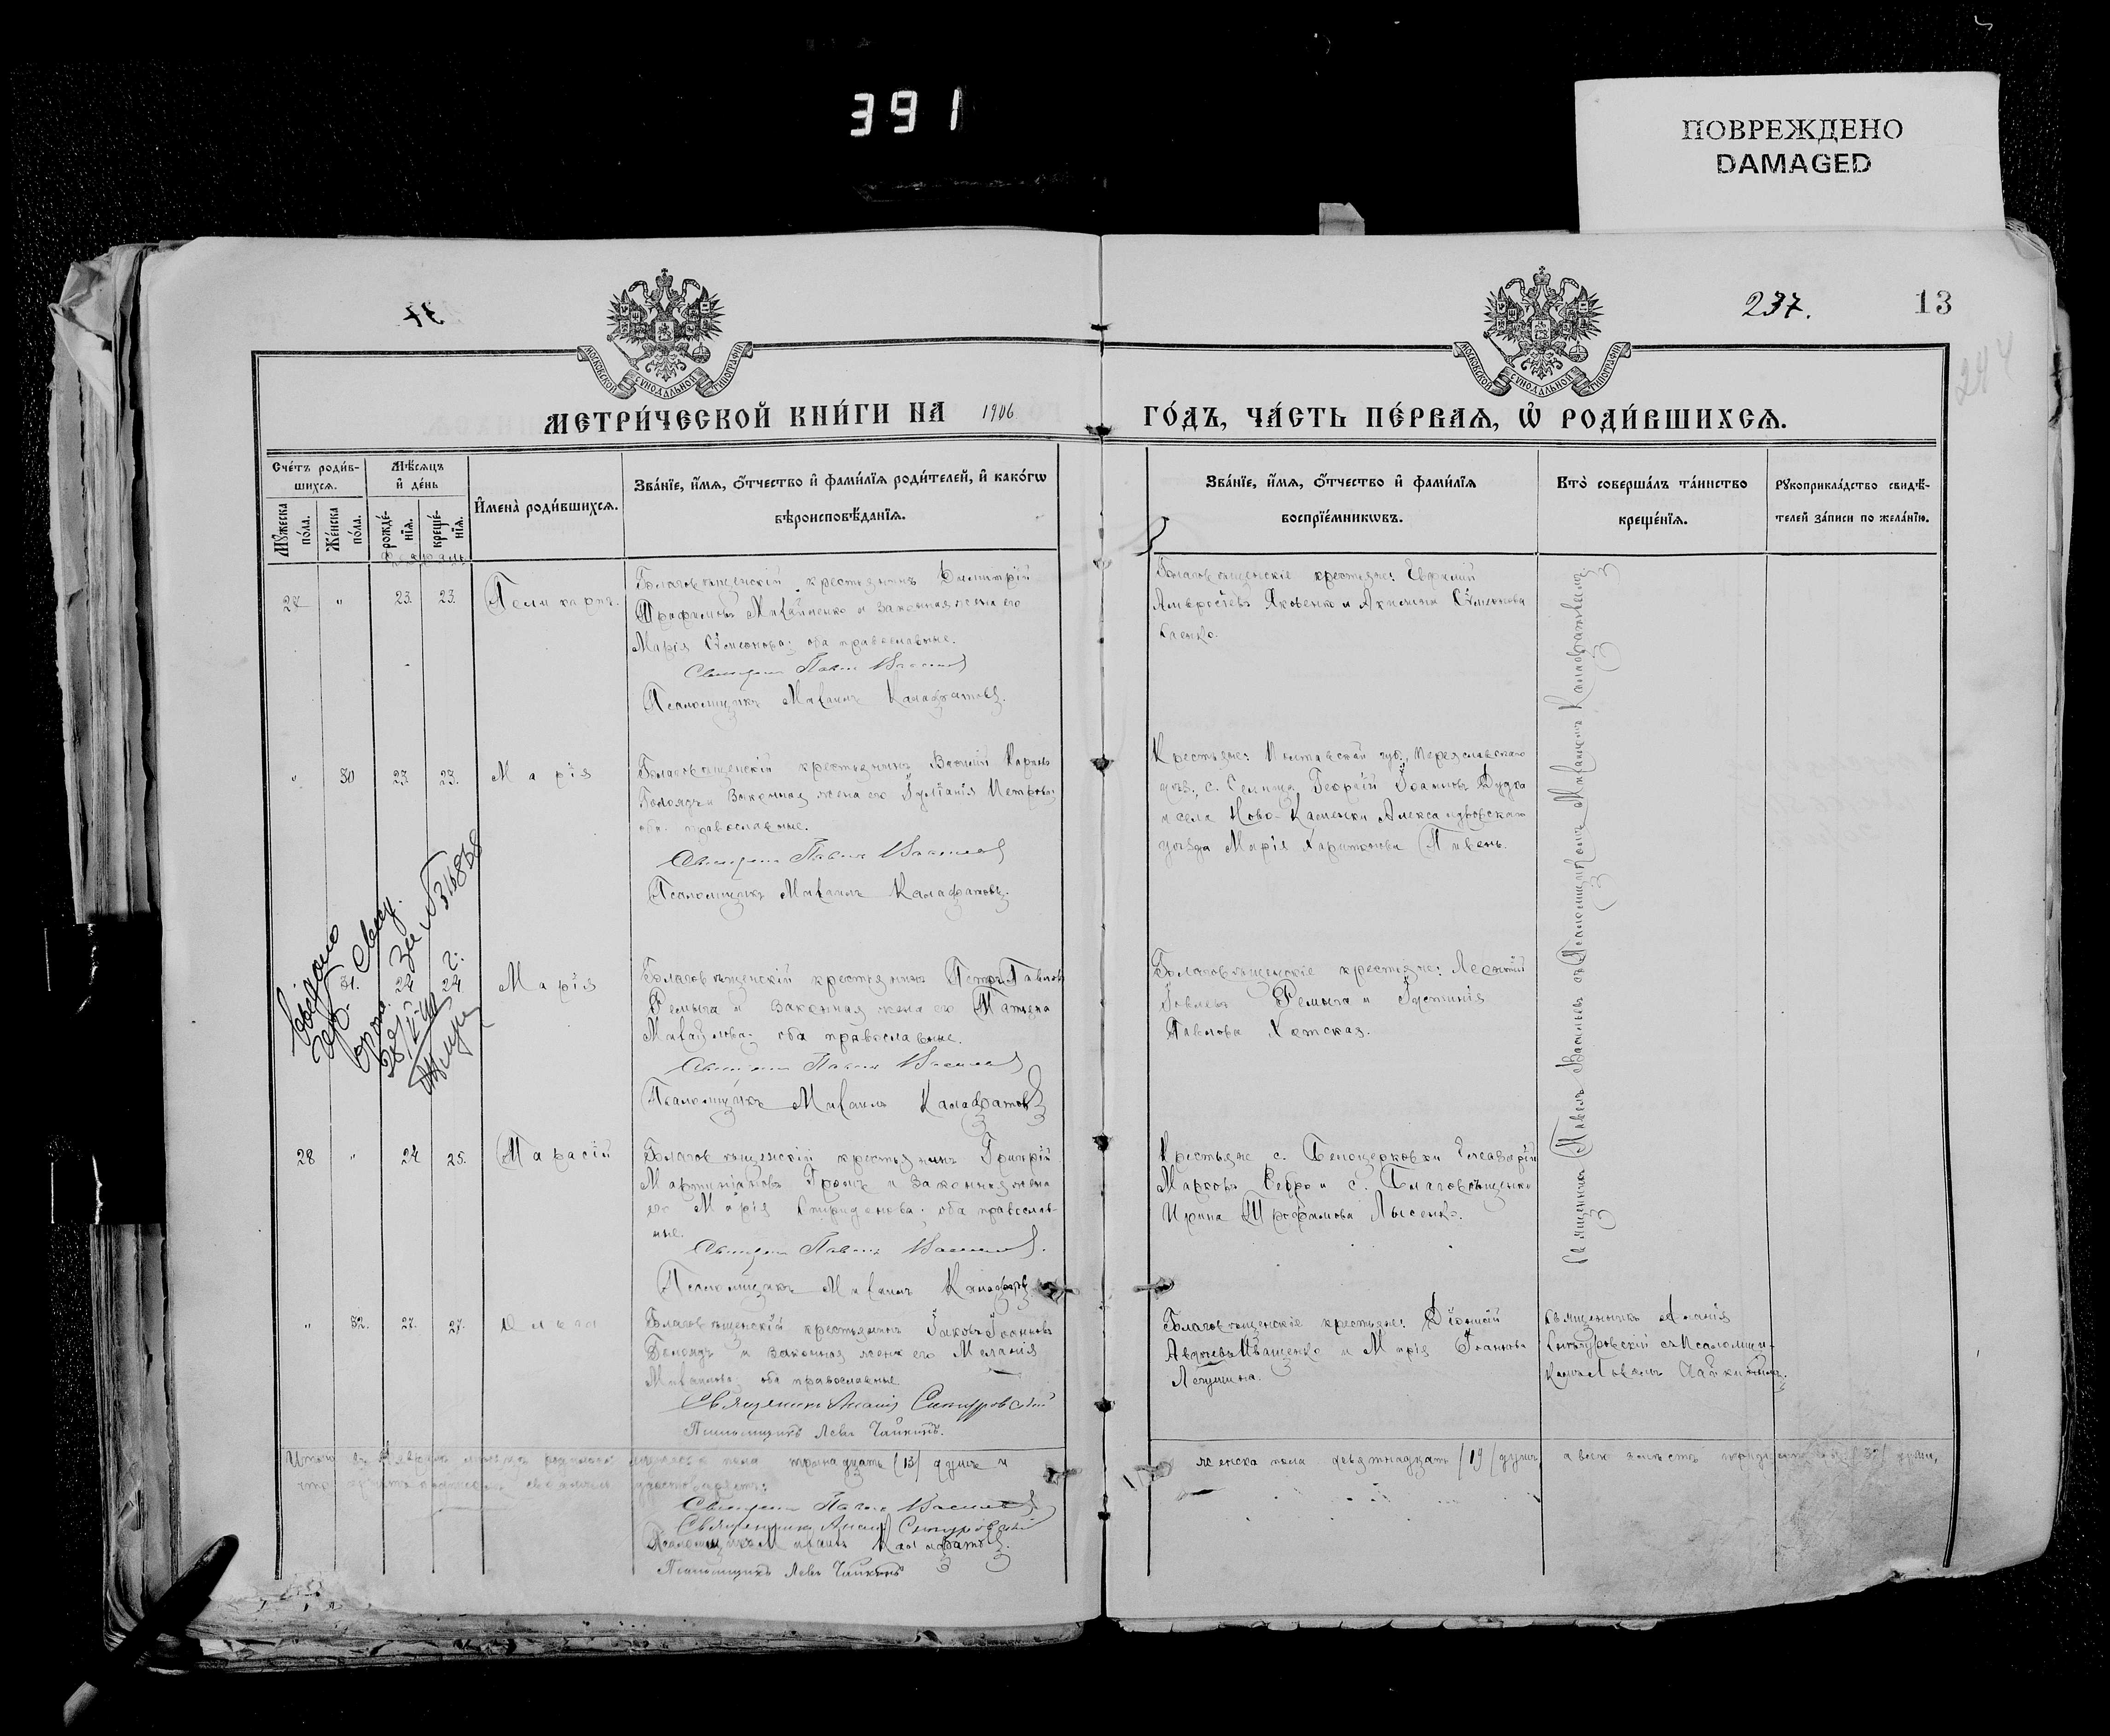 391
ПОВРЕЖДЕНО
DAMAGED
237.
13
244
37
МОСКОВСКОЙ СѴНОДАЛЬНОЙ ТИПОГРАФІИ
МОСКОВСКОЙ СѴНОДАЛЬНОЙ ТИПОГРАФІИ
МЕТРИ́ЧЕСКОЙ КНИ́ГИ НА 1906 ГО́ДЪ, ЧА́СТЬ ПЕ́РВАѦ, Ѡ҆ РОДИ́ВШИХСѦ.
Сче́тъ роди́в-
шихсѧ.
Мꙋ́жеска по́ла.
Же́нска по́ла.
Мѣ́сѧцъ
и҆ де́нь
рожде́-
нїѧ.
креще́-
нїѧ.
И҆мена̀ роди́вшихсѧ.
Зва́нїе, и҆́мѧ, ѻ҆́тчество и҆ фами́лїѧ роди́телей, и҆ како́гѡ
вѣроисповѣ́данїѧ.
Зва́нїе, и҆́мѧ, ѻ҆́тчество и҆ фами́лїѧ
воспрїе́мникѡвъ.
Кто̀ соверша́лъ та́инство
креще́нїѧ.
Рꙋкоприкла́дство свидѣ́-
телей за́писи по жела́нїю.
Февраль
27 " 23. 23. Поликарпъ.
Благовѣщенскій крестьянинъ Димитрій
Трофимовъ Михайленко и законная жена его
Марія Сѵмеонова; оба православные.
Священникъ Павелъ Васильевъ
Псаломщикъ Михаилъ Калафатовъ.
Благовѣщенскіе крестьяне: Евфимій
Амвросіевъ Яковенко и Акилина Сѵмеонова
" 30 23. 23. Марія
Благовѣщенскій крестьянинъ Василій Карповъ
Голоядъ и законная жена его Іуліанія Петрова;
оба православные.
Священникъ Павелъ Васильевъ
Псаломщикъ Михаилъ Калафатовъ.
Крестьяне: Полтавской губ., Переяславскаго
уѣз., с. Селища Георгій Іоанновъ Дудка
и села Ново-Каменки Александровскаго
уѣзда Марія Харитонова Пивень.
" 31. 24 24 Марія
Благовѣщенскій крестьянинъ Петръ Павловъ
Ремыга и законная жена его Татіана
Михайлова; оба православные.
Священникъ Павелъ Васильевъ
Псаломщикъ Михаилъ Калафатовъ
Благовѣщенскіе крестьяне: Леонтій
Іовлевъ Ремыга и Іустинія
Павлова Хатская.
28 " 24 25. Тарасій
Благовѣщенскій крестьянинъ Григорій
Мартиніановъ Громъ и законная жена
его Марія Спиридонова; оба православ-
ные.
Священникъ Павелъ Васильевъ.
Псаломщикъ Михаилъ Калафатовъ
Крестьяне с. Белоцерковки Елеазарій
Марковъ Себро и с. Благовѣщенки
Ирина Трофимова Лысенко.
Священникъ Павелъ Васильевъ съ Псаломщикомъ Михаиломъ Калафатовымъ
" 32. 27. 27. Ольга
Благовѣщенскій крестьянинъ Іаковъ Іоанновъ
Голоядъ и законная жена его Меланія
Михаилова; оба православные
Священникъ Ананія Снѣгуровскій
Псаломщикъ Левъ Чайкинъ.
Благовѣщенскіе крестьяне: Діонисій
Авдіевъ Иващенко и Марія Іоаннова
Лягушина.
Священникъ Ананія
Снѣгуровскій съ Псаломщи-
комъ Львомъ Чайкинымъ.
Итого въ Февралѣ мѣсяцѣ родилось: мужеска пола тринадцать (13) душъ и женска пола девятнадцать (19) душъ а всего вмѣстѣ тридцать два (32) души,
Священникъ Павелъ Васильевъ
Священникъ Ананія Снѣгуровскій
Псаломщикъ Михаилъ Калафатовъ.
Псаломщикъ Левъ Чайкинъ